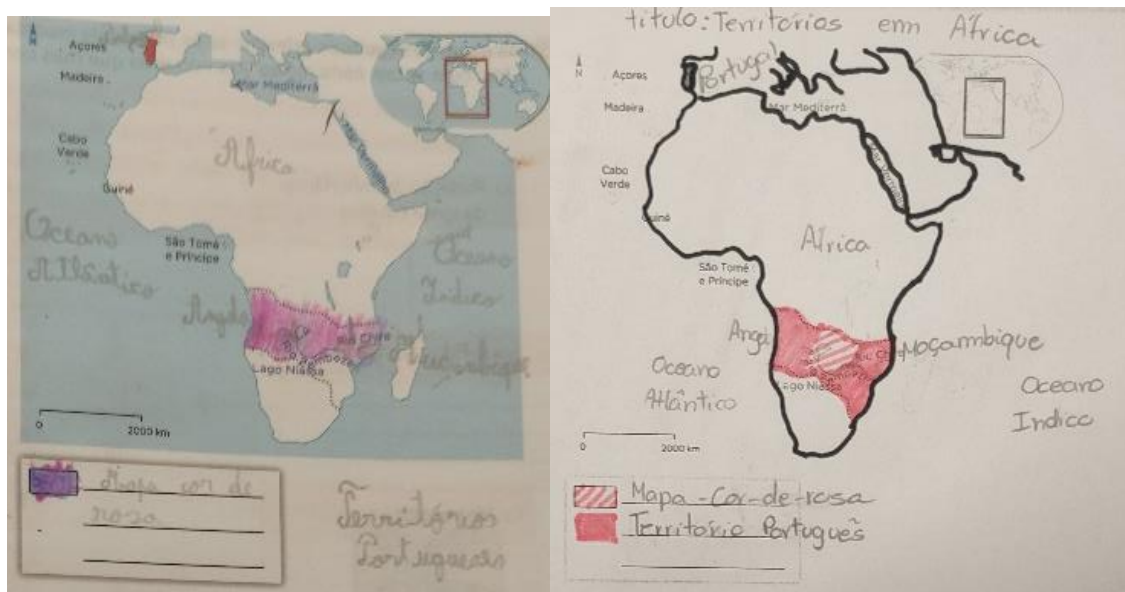 N
Açores
Madeira
Mar Mediterrâ
Cabo
Verde
África
Mar Vermelho
Guiné
Oceano
Atlântico
São Tomé
e Príncipe
Oceano
Índico
Angola
Rio Chire
R. Zambeze
Lago Niassa
Moçambique
2000 km
Mapa cor de
rosa
Territórios
Portugueses
título: Territórios em África
N
Açores
Portugal
Madeira
Mar Mediterrâ
Cabo
Verde
Guiné
África
São Tomé
e Príncipe
Moçambique
Lago Niassa
Oceano
Atlântico
Oceano
Indico
2000 km
Mapa-Cor-de-rosa
Território Português